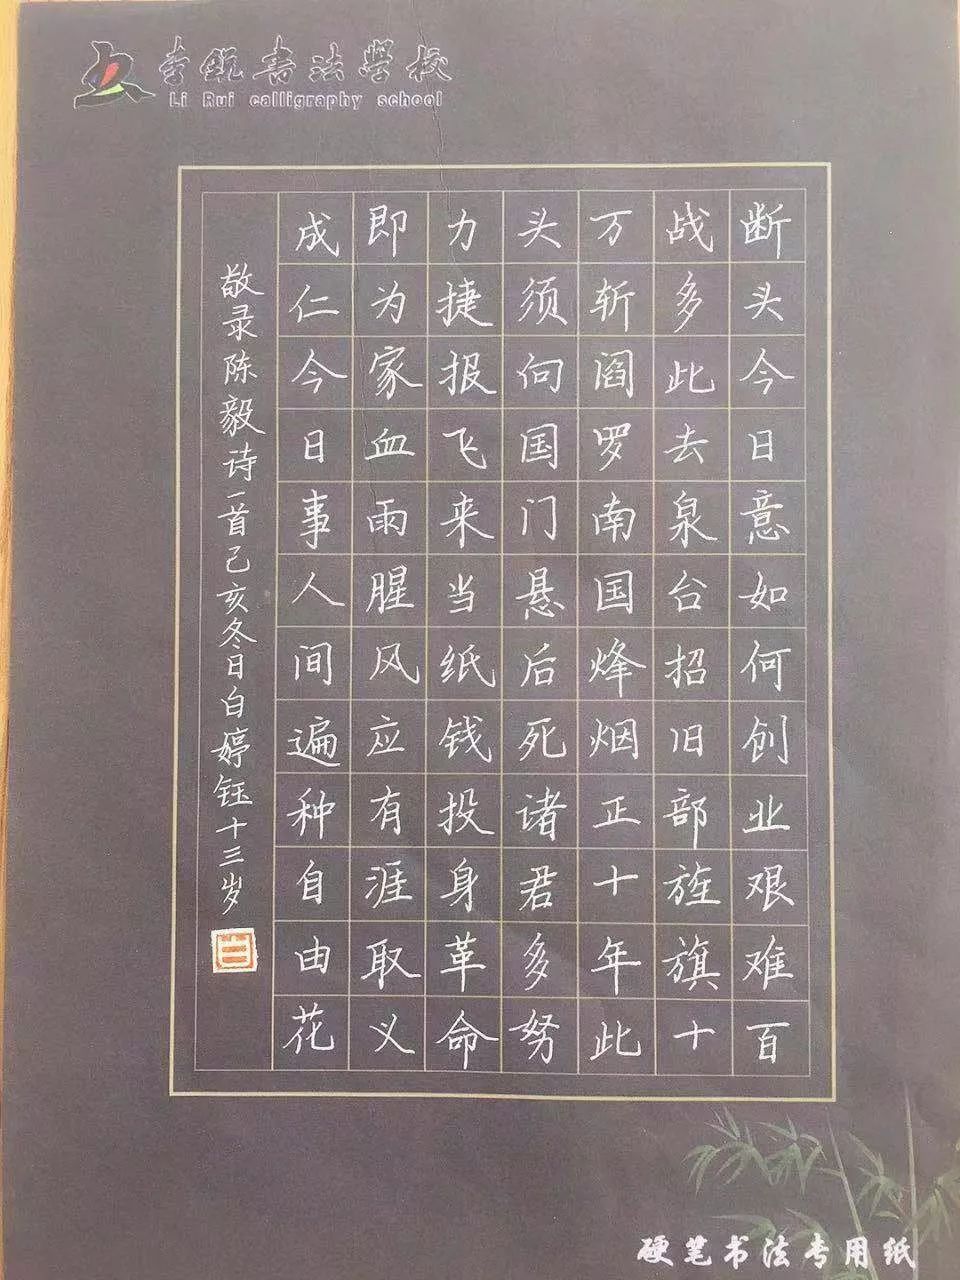 李锐书法学校
Li Rui calligraphy school
断头今日意如何创业艰难百
战多此去泉台招旧部旌旗十
万斩阎罗南国烽烟正十年此
头须向国门悬后死诸君多努
力捷报飞来当纸钱投身革命
即为家血雨腥风应有涯取义
成仁今日事人间遍种自由花
敬录陈毅诗一首己亥冬日白婷钰十三岁
白
硬笔书法专用纸